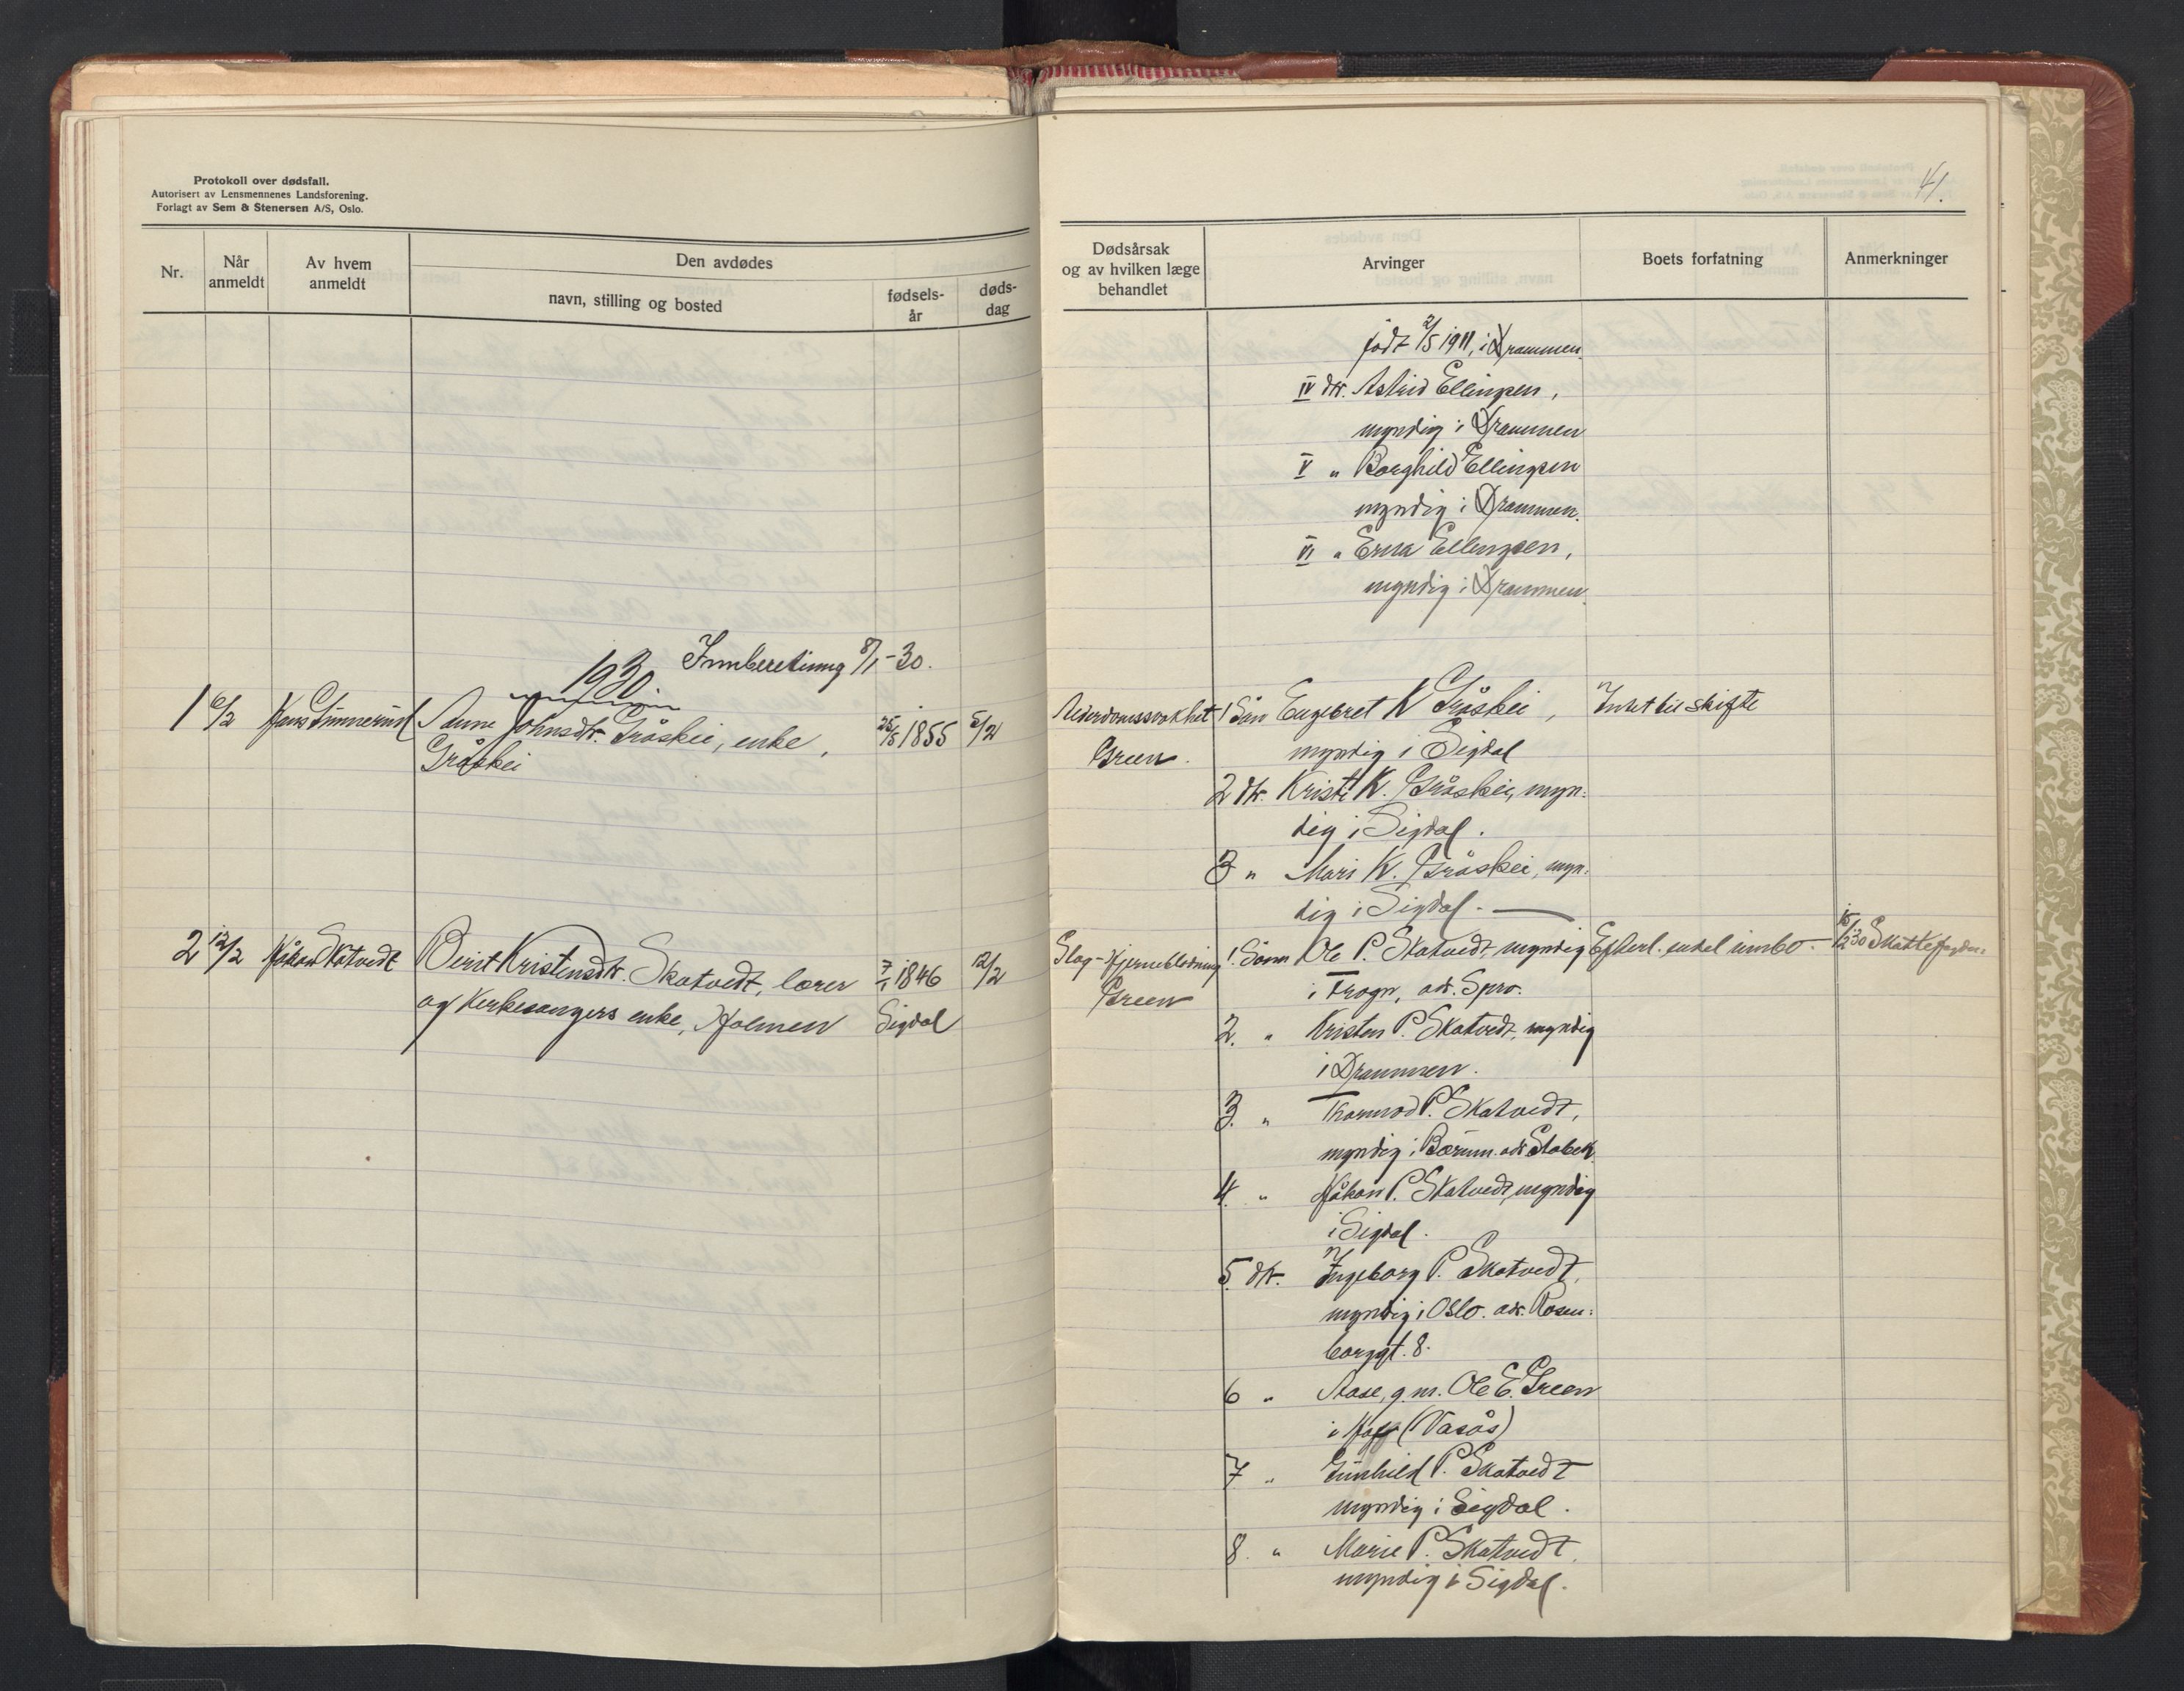 Protokoll over dødsfall.
Autorisert av Lensmennenes Landsforening.
Forlagt av Sem & Stenersen A/S, Oslo.
Nr.
Når anmeldt
Av hvem anmeldt
Den avdødes
navn, stilling og bosted
fødselsår
dødsdag
Innberetning 8/1-30.
1930.
1 6/2 Hans
Anne Johnsdtr. Gråskei, enke, 25/5 1855 5/2
Gråskei
2 12/2 Håkon Skatvedt
Berit Kristensdtr. Skatvedt, lærer 7/1 1846 12/2
og kirkesangers enke, Holmen Sigdal
41.
Dødsårsak
og av hvilken læge
behandlet
Arvinger
Boets forfatning
Anmerkninger
født 2/5 1911, i Drammen.
IV dtr. Astrid Ellingsen,
myndig i Drammen
V " Borghild Ellingsen
myndig i Drammen.
VI " Erna Ellingsen,
myndig i Drammen.
Alderdomssvakhet 1 Søn Engebret K Gråskei, Intet til skifte
Green. myndig i Sigdal
2 dtr. Kristi K. Gråskei, myn-
dig i Sigdal.
3 " Mari K. Gråskei, myn-
dig i Sigdal. —
Slag-Hjerneblødning 1. Sønn Ole P. Skatvedt, myndig Efterl. enkel innbo. 15/2 30
Green i Frogn, adr. Spro.
2. " Kristen P. Skatvedt, myndig
i Drammen.
3. " Thormod P. Skatvedt,
myndig i Bærum. adr Stabek.
4. " Håkon P. Skatvedt, myndig
i Sigdal.
5. dtr. Ingeborg P. Skatvedt,
myndig i Oslo. adr. Rosen-
borggt. 8.
6 " Aase, g.m. Ole E. Green
i Hof (Vasås)
7 " Gunhild P. Skatvedt
myndig i Sigdal.
8. " Marie P. Skatvedt,
myndig i Sigdal.